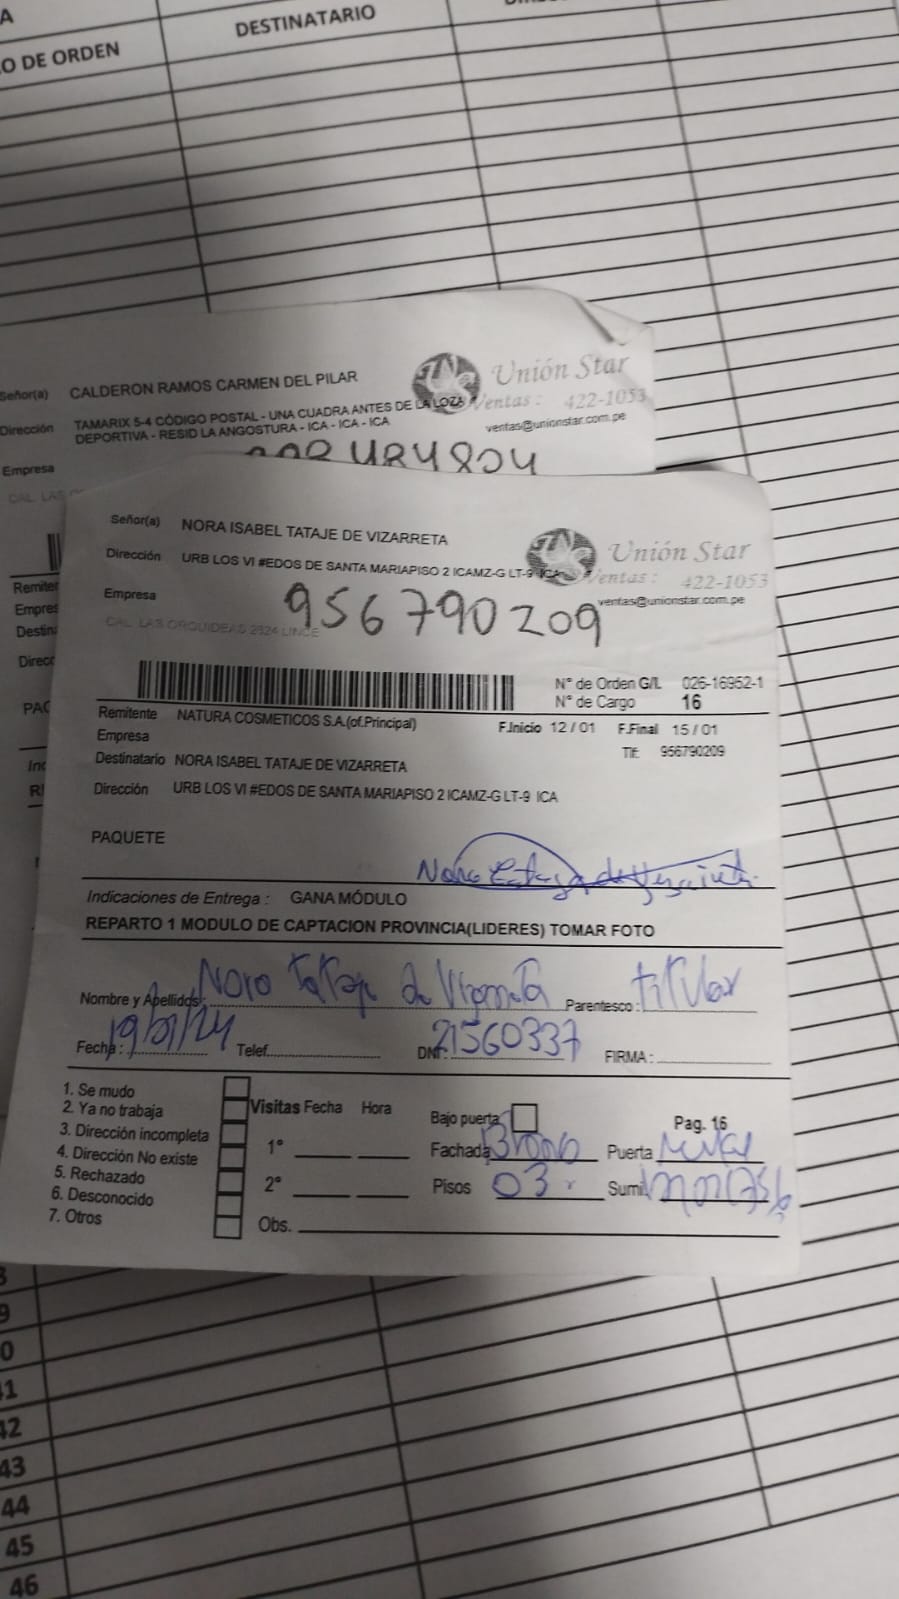 A
O DE ORDEN
DESTINATARIO
Señor(a) CALDERON RAMOS CARMEN DEL PILAR
Unión Star
Dirección TAMARIX 5-4 CÓDIGO POSTAL - UNA CUADRA ANTES DE LA LOZA
DEPORTIVA - RESID LA ANGOSTURA - ICA - ICA - ICA
Ventas: 422-1053
ventas@unionstar.com.pe
Empresa
CAL. LAS
Señor(a) NORA ISABEL TATAJE DE VIZARRETA
Unión Star
Dirección URB LOS VI #EDOS DE SANTA MARIAPISO 2 ICAMZ-G LT-9 ICA
Ventas: 422-1053
ventas@unionstar.com.pe
Empresa
956790209
CAL. LAS ORQUIDEAS 2324 LINCE
N° de Orden G/L 026-16952-1
N° de Cargo 16
Remitente NATURA COSMETICOS S.A.(of.Principal) F.Inicio 12/01 F.Final 15/01
Empresa
Tlf: 956790209
Destinatario NORA ISABEL TATAJE DE VIZARRETA
Dirección URB LOS VI #EDOS DE SANTA MARIAPISO 2 ICAMZ-G LT-9 ICA
PAQUETE
Indicaciones de Entrega : GANA MÓDULO
REPARTO 1 MODULO DE CAPTACION PROVINCIA(LIDERES) TOMAR FOTO
Nombre y Apellidos: Parentesco: titular
Fecha: 19/01/24 Telef. DNI: 21560337 FIRMA:
1. Se mudo
2. Ya no trabaja
3. Dirección incompleta
4. Dirección No existe
5. Rechazado
6. Desconocido
7. Otros
Visitas Fecha Hora
1°
2°
Obs.
Bajo puerta
Pag. 16
Fachada Puerta
Pisos 03 Sumi
9
41
42
43
44
45
46